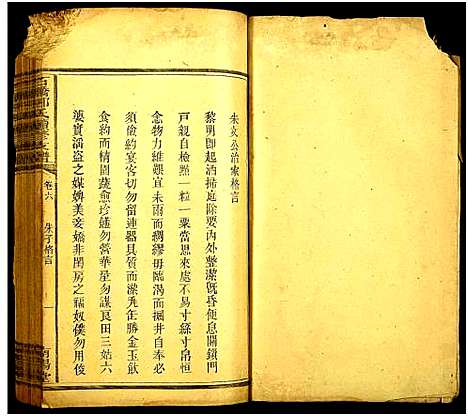 朱文公治家格言
黎明即起洒掃庭除要內外整潔既昏便息關鎖門
戸親自檢點一粒一粟當思來處不易寸絲寸帛恒
念物力維艱宜未雨而綢繆毋臨渴而掘井自奉必
須儉約宴客切勿留連器具質而潔瓦缶勝金玉飲
食約而精園蔬愈珍饈勿營華屋勿謀良田三姑六
婆實淫盜之媒婢美妾嬌非閨房之福奴僕勿用俊
氏
譜
卷六
朱子格言
一
堂